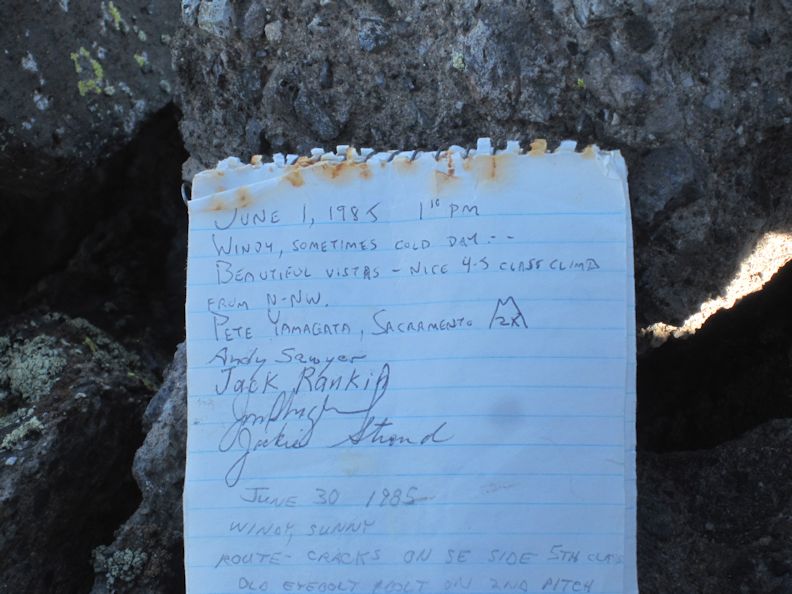 JUNE 1, 1985 1 10 PM
WINDY, SOMETIMES COLD DAY--
BEAUTIFUL VISTAS - NICE 4-5 CLASS CLIMB
FROM N-NW.
PETE YAMAGATA, SACRAMENTO 2X
Andy Sawyer
Jack Rankin
Jackie Stroud
JUNE 30 1985
WINDY, SUNNY
ROUTE - CRACKS ON SE SIDE 5TH CLASS
OLD EYEBOLT ON 2ND PITCH